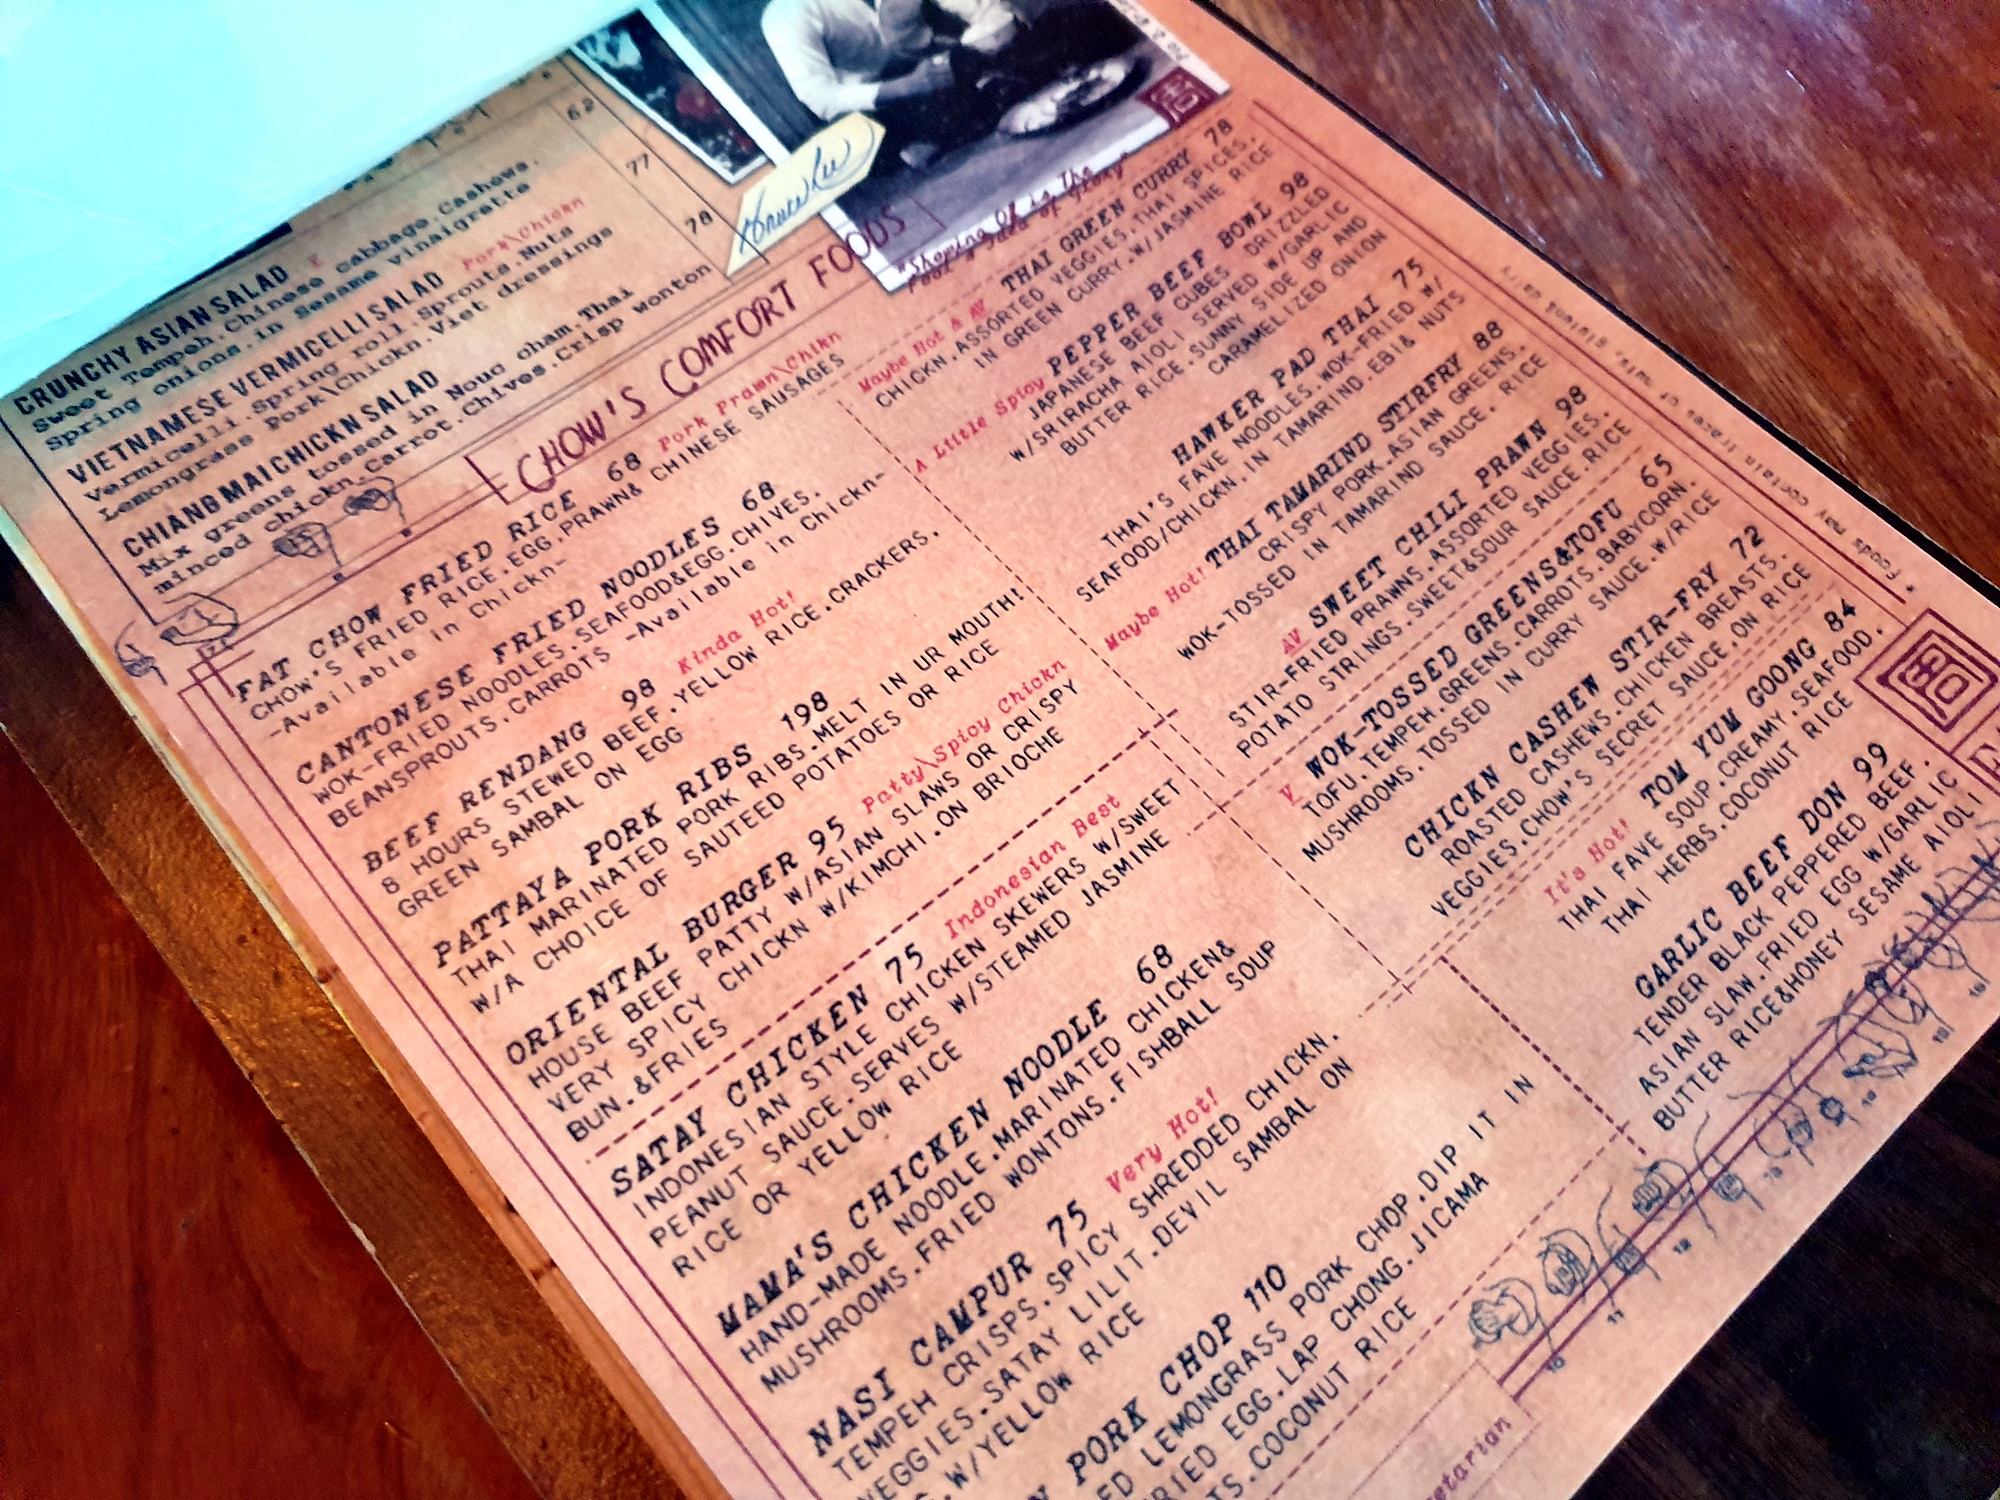 62
CRUNCHY ASIAN SALAD V
Sweet Tempeh.Chinese cabbage.Cashews.
Spring onions.In Sesame vinaigratte
77
VIETNAMESE VERMICELLI SALAD Pork\Chicken
Vermicelli.Spring roll.Sprouts.Nuts
Lemongrass Pork\Chickn.Viet dressings
78
CHIANBMAI CHICKN SALAD
Mix greens tossed in Nouc cham.Thai
minced chickn.Carrot.Chives.Crisp wonton
"Showing Off is The
Fool's Idea of Glory"
CHOW'S COMFORT FOODS
FAT CHOW FRIED RICE 68 Pork Prawn\Chikn
CHOW'S FRIED RICE.EGG.PRAWN& CHINESE SAUSAGES
-Available in Chickn-
CANTONESE FRIED NOODLES 68
WOK-FRIED NOODLES.SEAFOOD&EGG.CHIVES.
BEANSPROUTS.CARROTS -Available in Chickn-
BEEF RENDANG 98 Kinda Hot!
8 HOURS STEWED BEEF.YELLOW RICE.CRACKERS.
GREEN SAMBAL ON EGG
PATTAYA PORK RIBS 198
THAI MARINATED PORK RIBS.MELT IN UR MOUTH!
W/A CHOICE OF SAUTEED POTATOES OR RICE
ORIENTAL BURGER 95 Patty\Spicy Chickn
HOUSE BEEF PATTY W/ASIAN SLAWS OR CRISPY
VERY SPICY CHICKN W/KIMCHI.ON BRIOCHE
BUN.&FRIES
SATAY CHICKEN 75 Indonesian Best
INDONESIAN STYLE CHICKEN SKEWERS W/SWEET
PEANUT SAUCE.SERVES W/STEAMED JASMINE
RICE OR YELLOW RICE
MAMA'S CHICKEN NOODLE 68
HAND-MADE NOODLE.MARINATED CHICKEN&
MUSHROOMS.FRIED WONTONS.FISHBALL SOUP
NASI CAMPUR 75 Very Hot!
TEMPEH CRISPS.SPICY SHREDDED CHICKN.
VEGGIES.SATAY LILIT.DEVIL SAMBAL ON
W/YELLOW RICE
PORK CHOP 110
LEMONGRASS PORK CHOP.DIP IT IN
FRIED EGG.LAP CHONG.JICAMA
COCONUT RICE
Maybe Hot & AV THAI GREEN CURRY 78
CHICKN.ASSORTED VEGGIES.THAI SPICES.
IN GREEN CURRY.W/JASMINE RICE
A Little Spicy PEPPER BEEF BOWL 98
JAPANESE BEEF CUBES DRIZZLED
W/SRIRACHA AIOLI SERVED W/GARLIC
BUTTER RICE.SUNNY SIDE UP AND
CARAMELIZED ONION
HAWKER PAD THAI 75
THAI'S FAVE NOODLES.WOK-FRIED W/
SEAFOOD/CHICKN.IN TAMARIND.EBI& NUTS
Maybe Hot! THAI TAMARIND STIRFRY 88
CRISPY PORK.ASIAN GREENS.
WOK-TOSSED IN TAMARIND SAUCE. RICE
AV SWEET CHILI PRAWN 98
STIR-FRIED PRAWNS.ASSORTED VEGGIES.
POTATO STRINGS.SWEET&SOUR SAUCE.RICE
V WOK-TOSSED GREENS&TOFU 65
TOFU.TEMPEH.GREENS.CARROTS.BABYCORN.
MUSHROOMS.TOSSED IN CURRY SAUCE.W/RICE
CHICKN CASHEW STIR-FRY 72
ROASTED CASHEWS.CHICKEN BREASTS.
VEGGIES.CHOW'S SECRET SAUCE.ON RICE
It's Hot! TOM YUM GOONG 84
THAI FAVE SOUP.CREAMY.SEAFOOD.
THAI HERBS.COCONUT RICE
GARLIC BEEF DON 99
TENDER BLACK PEPPERED BEEF.
ASIAN SLAW.FRIED EGG W/GARLIC
BUTTER RICE&HONEY SESAME AIOLI
* Foods may contain traces of
10
11
12